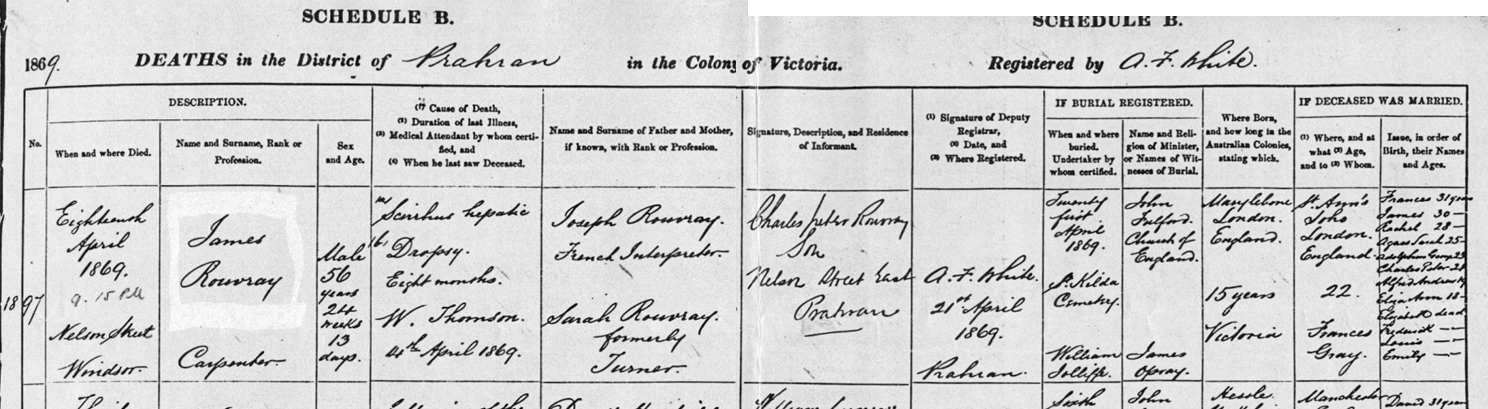 SCHEDULE B.
SCHEDULE B.
1869. DEATHS in the District of Prahran in the Colony of Victoria. Registered by A. F. White.
No.
DESCRIPTION.
When and where Died.
Name and Surname, Rank or
Profession.
Sex
and Age.
(1) Cause of Death,
(2) Duration of last Illness,
(3) Medical Attendant by whom certi-
fied, and
(4) When he last saw Deceased.
Name and Surname of Father and Mother,
if known, with Rank or Profession.
Signature, Description, and Residence
of Informant.
(1) Signature of Deputy
Registrar,
(2) Date, and
(3) Where Registered.
IF BURIAL REGISTERED.
When and where
buried.
Undertaker by
whom certified.
Name and Reli-
gion of Minister,
or Names of Wit-
nesses of Burial.
Where Born,
and how long in the
Australian Colonies,
stating which.
IF DECEASED WAS MARRIED.
(1) Where, and at
what (2) Age,
and to (3) Whom.
Issue, in order of
Birth, their Names
and Ages.
1897
Eighteenth
April
1869.
9.15 PM
Nelson Street
Windsor.
James
Rouvray
Carpenter
Male
56
years
24
weeks
13
days.
Scirrhus hepatic
Dropsy.
Eight months.
W. Thomson.
April 1869.
Joseph Rouvray.
French Interpreter.
Sarah Rouvray.
formerly
Turner.
Charles Peter Rouvray
Son
Nelson Street East
Prahran
A. F. White.
21st April
1869.
Prahran.
Twenty
first
April
1869.
St. Kilda
Cemetry.
William
Jolliffe.
John
Fulford.
Church of
England.
James
Marylebone
London.
England.
15 years
Victoria
St. Ann's
Soho
London.
England.
22.
Frances
Gray.
Frances 31 years
James 30 —
Rachel 28 —
Agnes Sarah 25 -
Adolphus George 23
Charles Peter - 21
Alfred Andrew
Eliza Ann 18 -
Elizabeth dead
Frederick — —
Louis — —
Emily — —
Sixth
John
Hessle.
Manchester
David 31 years